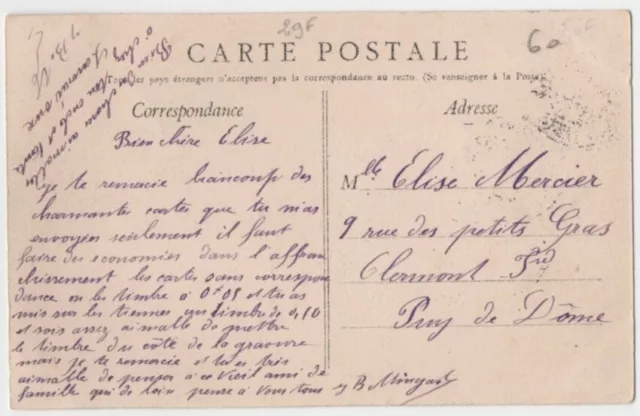 29f
60
CARTE POSTALE
Tous les pays étrangers n'acceptent pas la correspondance au recto. (Se renseigner à la Poste)
Correspondance
Adresse
Bien chère Elise
je te remacie baucoup des
charmantes cartes que tu m'as
envoyées seulement il faut
faire des economies dans l'affran
chissement les cartes sans correspon
dance on les timbre à 0f05 et tu as
mis sur les tiennes un timbre de 0,10
et sois assez aimable de mettre
le timbre du côté de la gravure
mais je te remacie et tu es très
aimable de penser à ce vieil ami de
famille qui de loin pense à vous tous
Mlle Elise Mercier
9 rue des petits Gras
Clermont Fd
Puy de Dôme